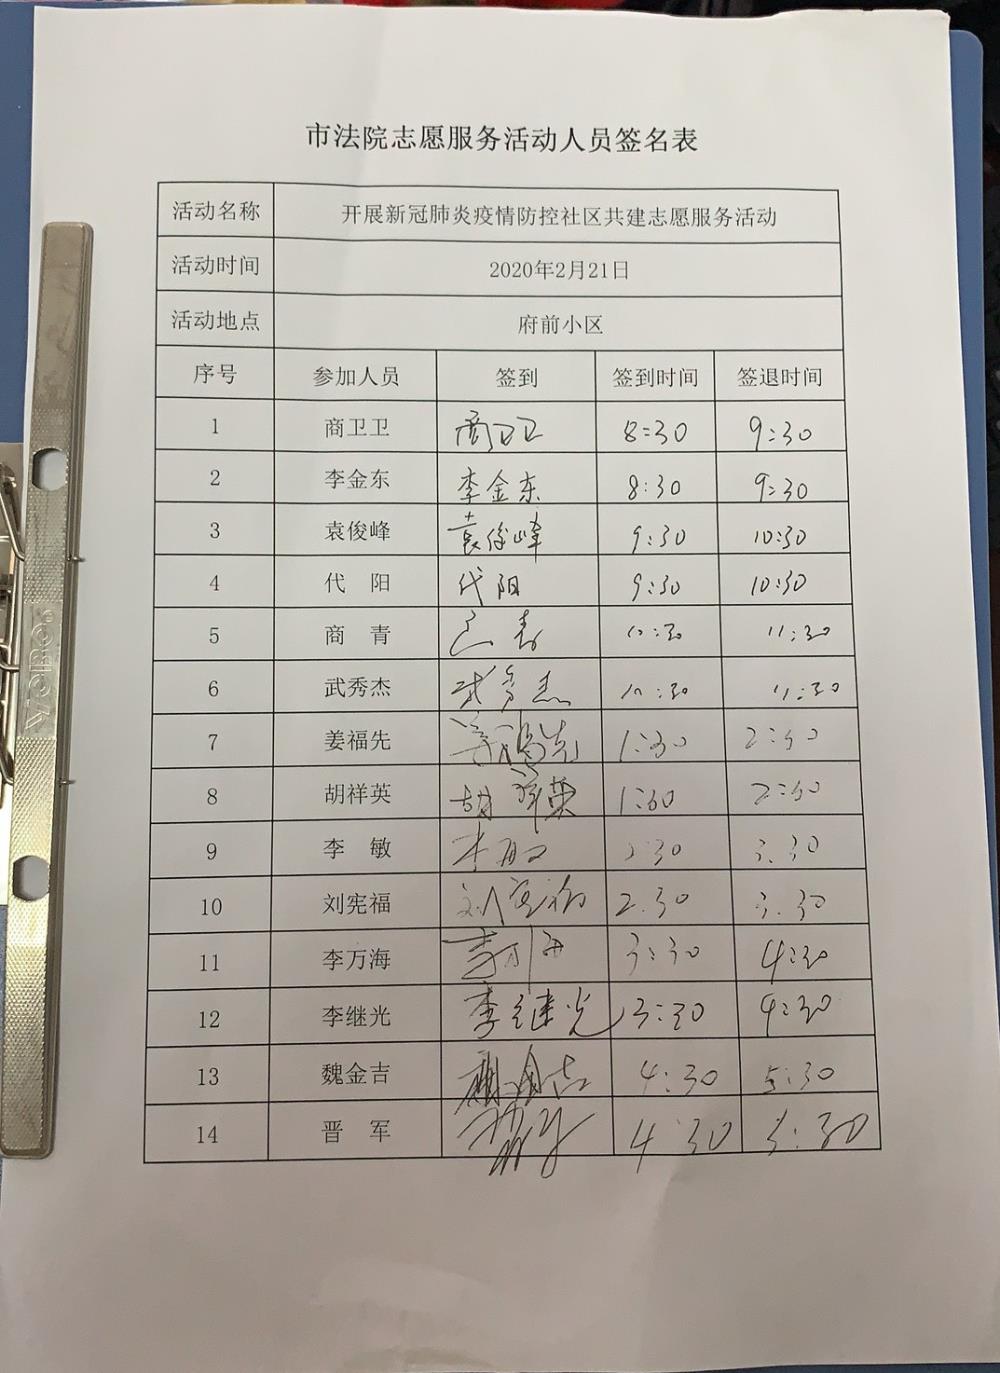 市法院志愿服务活动人员签名表
活动名称 开展新冠肺炎疫情防控社区共建志愿服务活动
活动时间 2020年2月21日
活动地点 府前小区
序号 参加人员 签到 签到时间 签退时间
1 商卫卫 商卫卫 8:30 9:30
2 李金东 李金东 8:30 9:30
3 袁俊峰 袁俊峰 9:30 10:30
4 代 阳 代阳 9:30 10:30
5 商 青 10:30 11:30
6 武秀杰 武秀杰 10:30 11:30
7 姜福先 姜福先 1:30 2:30
8 胡祥英 胡祥英 1:30 2:30
9 李 敏 李敏 2:30 3:30
10 刘宪福 刘宪福 2:30 3:30
11 李万海 李万海 3:30 4:30
12 李继光 李继光 3:30 4:30
13 魏金吉 魏金吉 4:30 5:30
14 晋 军 4:30 5:30